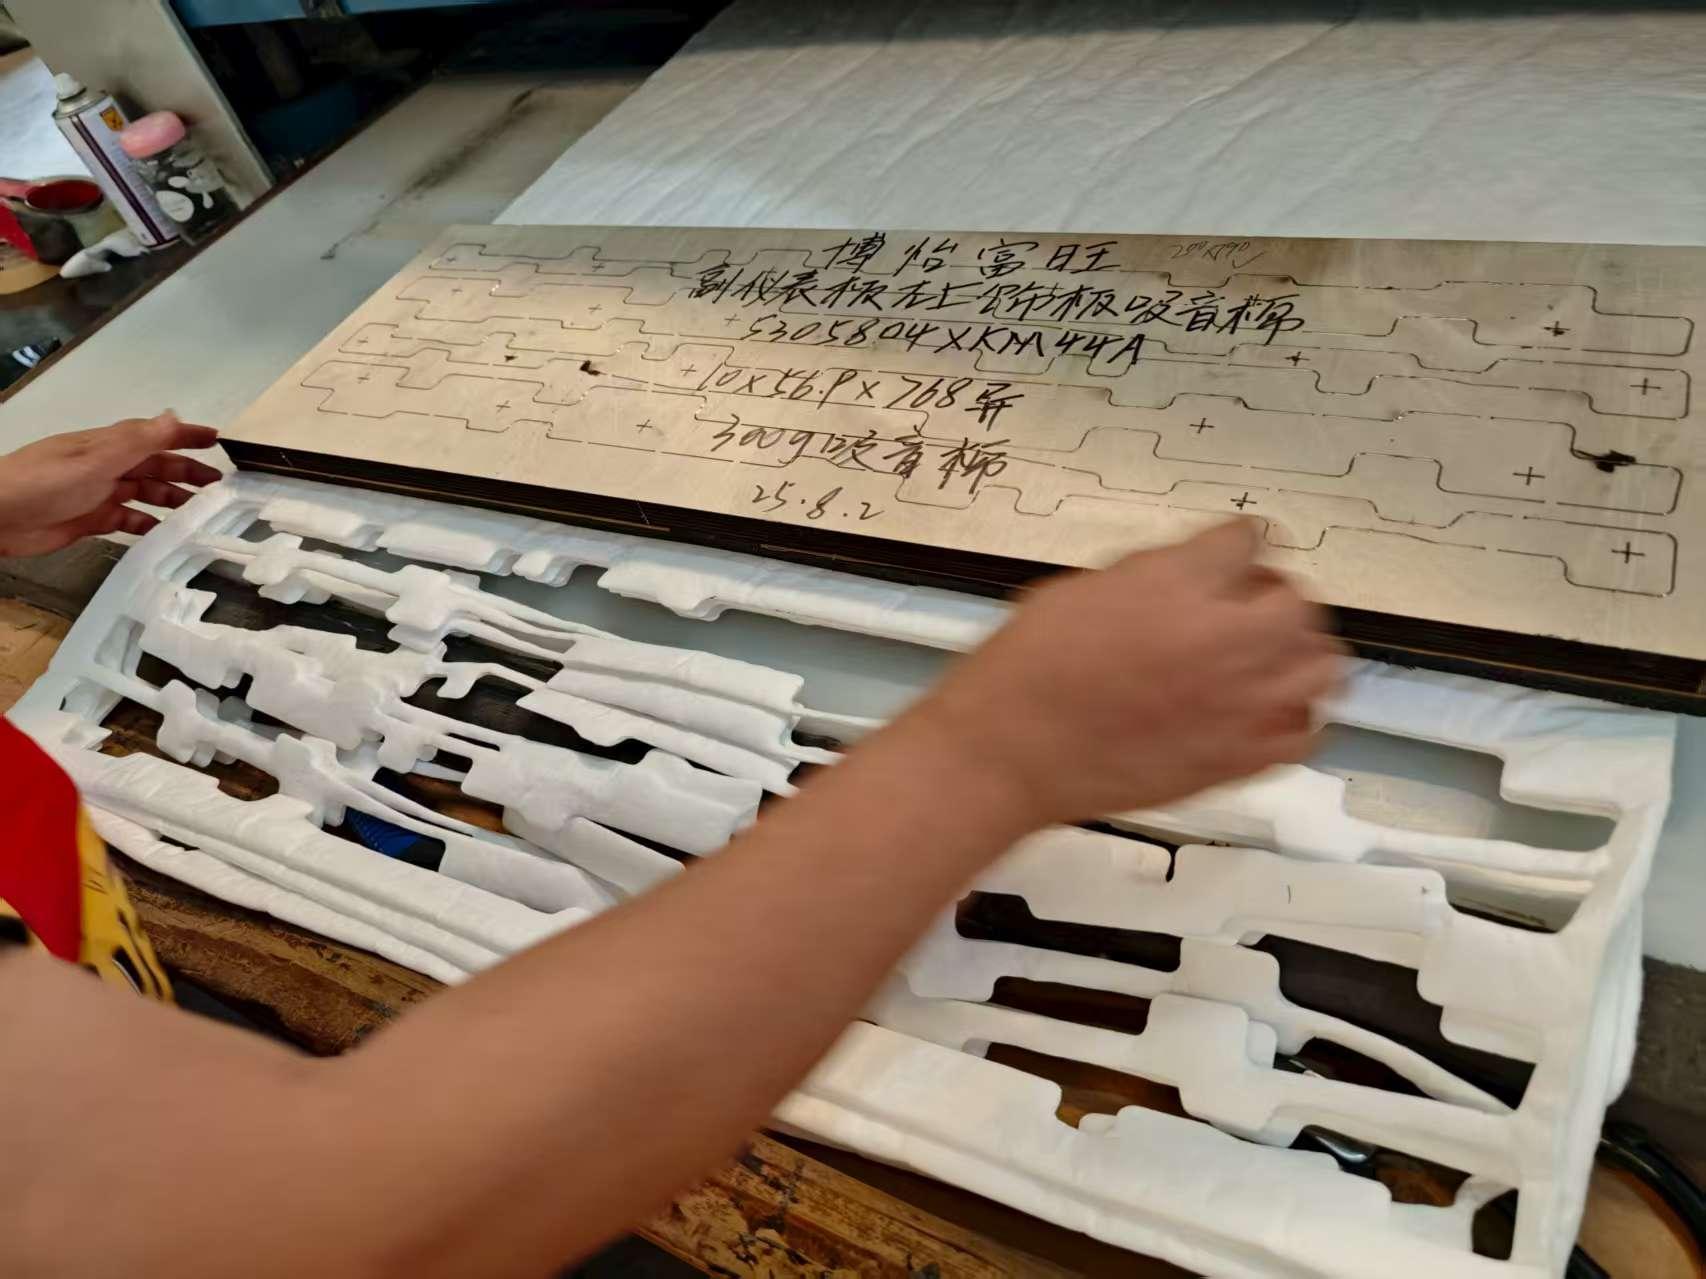 博怡富旺
副仪表板左上饰板吸音棉
5305804XKM44A
10×56.9×768昇
300g吸音棉
25.8.2